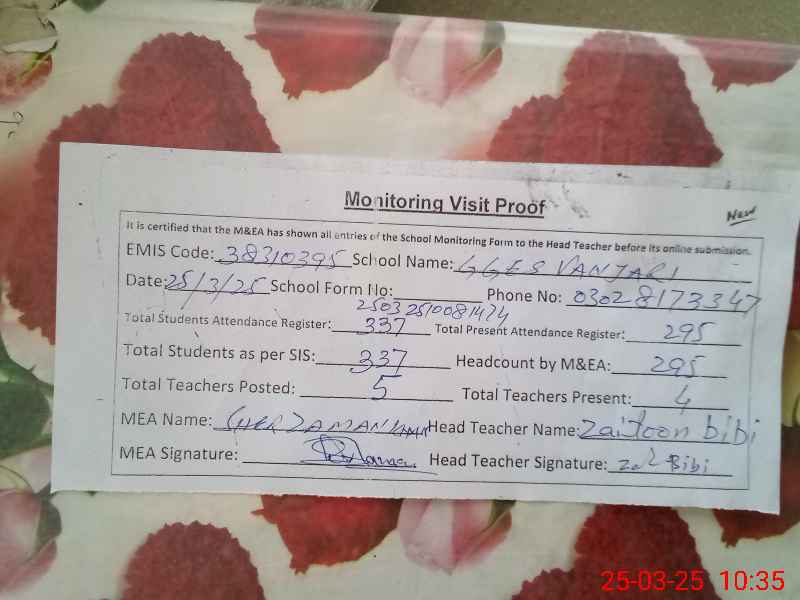 Monitoring Visit Proof
New
It is certified that the M&EA has shown all entries of the School Monitoring Form to the Head Teacher before its online submission.
EMIS Code: 38310395 School Name: GGES VANJARI
Date: 25/3/25 School Form No: Phone No: 03028173347
Total Students Attendance Register: 337 Total Present Attendance Register: 295
Total Students as per SIS: 337 Headcount by M&EA: 295
Total Teachers Posted: 5 Total Teachers Present: 4
MEA Name: SHER ZAMAN KHAN Head Teacher Name: Zaitoon bibi
MEA Signature: Head Teacher Signature: Bibi
25-03-25 10:35